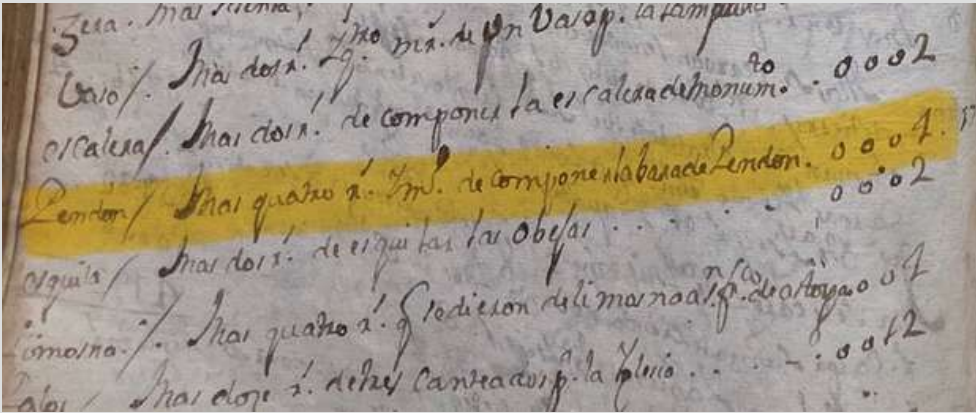 Zera. Mas
Vaso/. Mas dos r.s y q.tro mr.s de un Vaso p.a la lampara
escalera/. Mas dos r.s de componer la escalera de Monum.to . 0002
Pendon/ Mas quatro r.s y m.o de componer la bara de Pendon. 0004.
esquila/ Mas dos r.s de esquilar las obejas . . . . 0002
Limosna./. Mas quatro r.s q se dieron de limosna a S.n Fr.co de astorga 0004
Palos/ Mas doze r.s de tres canteados p.a la Yglesia . . - . 0012